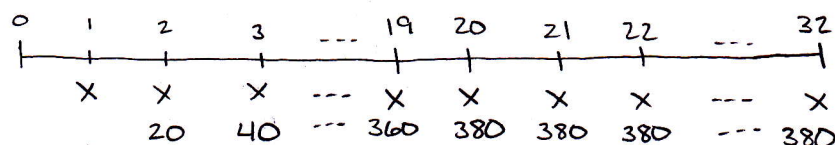 0 1 2 3 --- 19 20 21 22 --- 32
X X X --- X X X X --- X
20 40 --- 360 380 380 380 --- 380